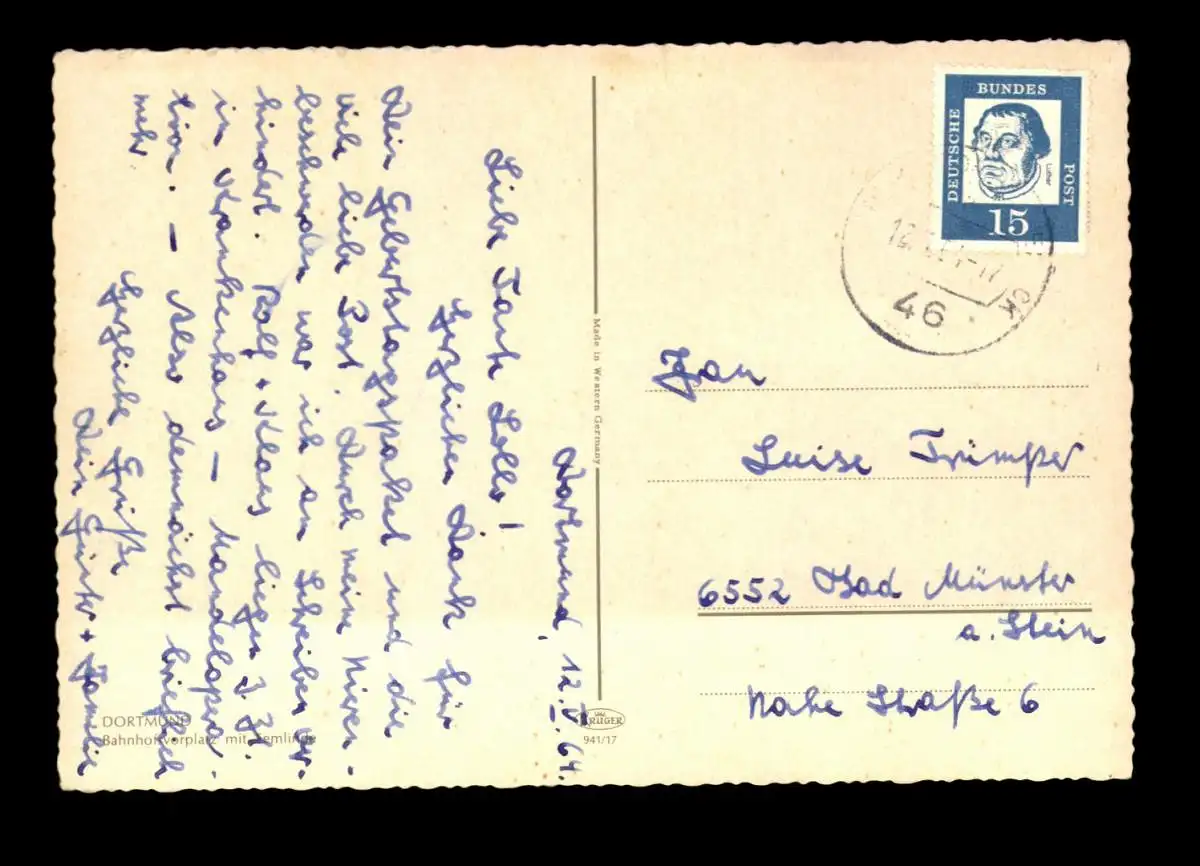 Dortmund, 12.V.64.
Liebe Tante Lollo!
Herzlichen Dank für
Dein Geburtstagspaket und die
viele liebe Post. Durch meine Nieren-
beschwerden war ich am Schreiben ver-
hindert. Rolf + Klaus liegen z. Zt.
im Krankenhaus – Mandelopera-
tion. – Also demnächst brieflich
mehr.
Herzliche Grüße
Dein Günter + Familie
DORTMUND
Bahnhofvorplatz mit
Made in Western Germany
KRÜGER
941/17
DEUTSCHE BUNDES POST
Luther
15
46
Frau
Luise Trümper
6552 Bad Münster
a. Stein
Nahe Straße 6